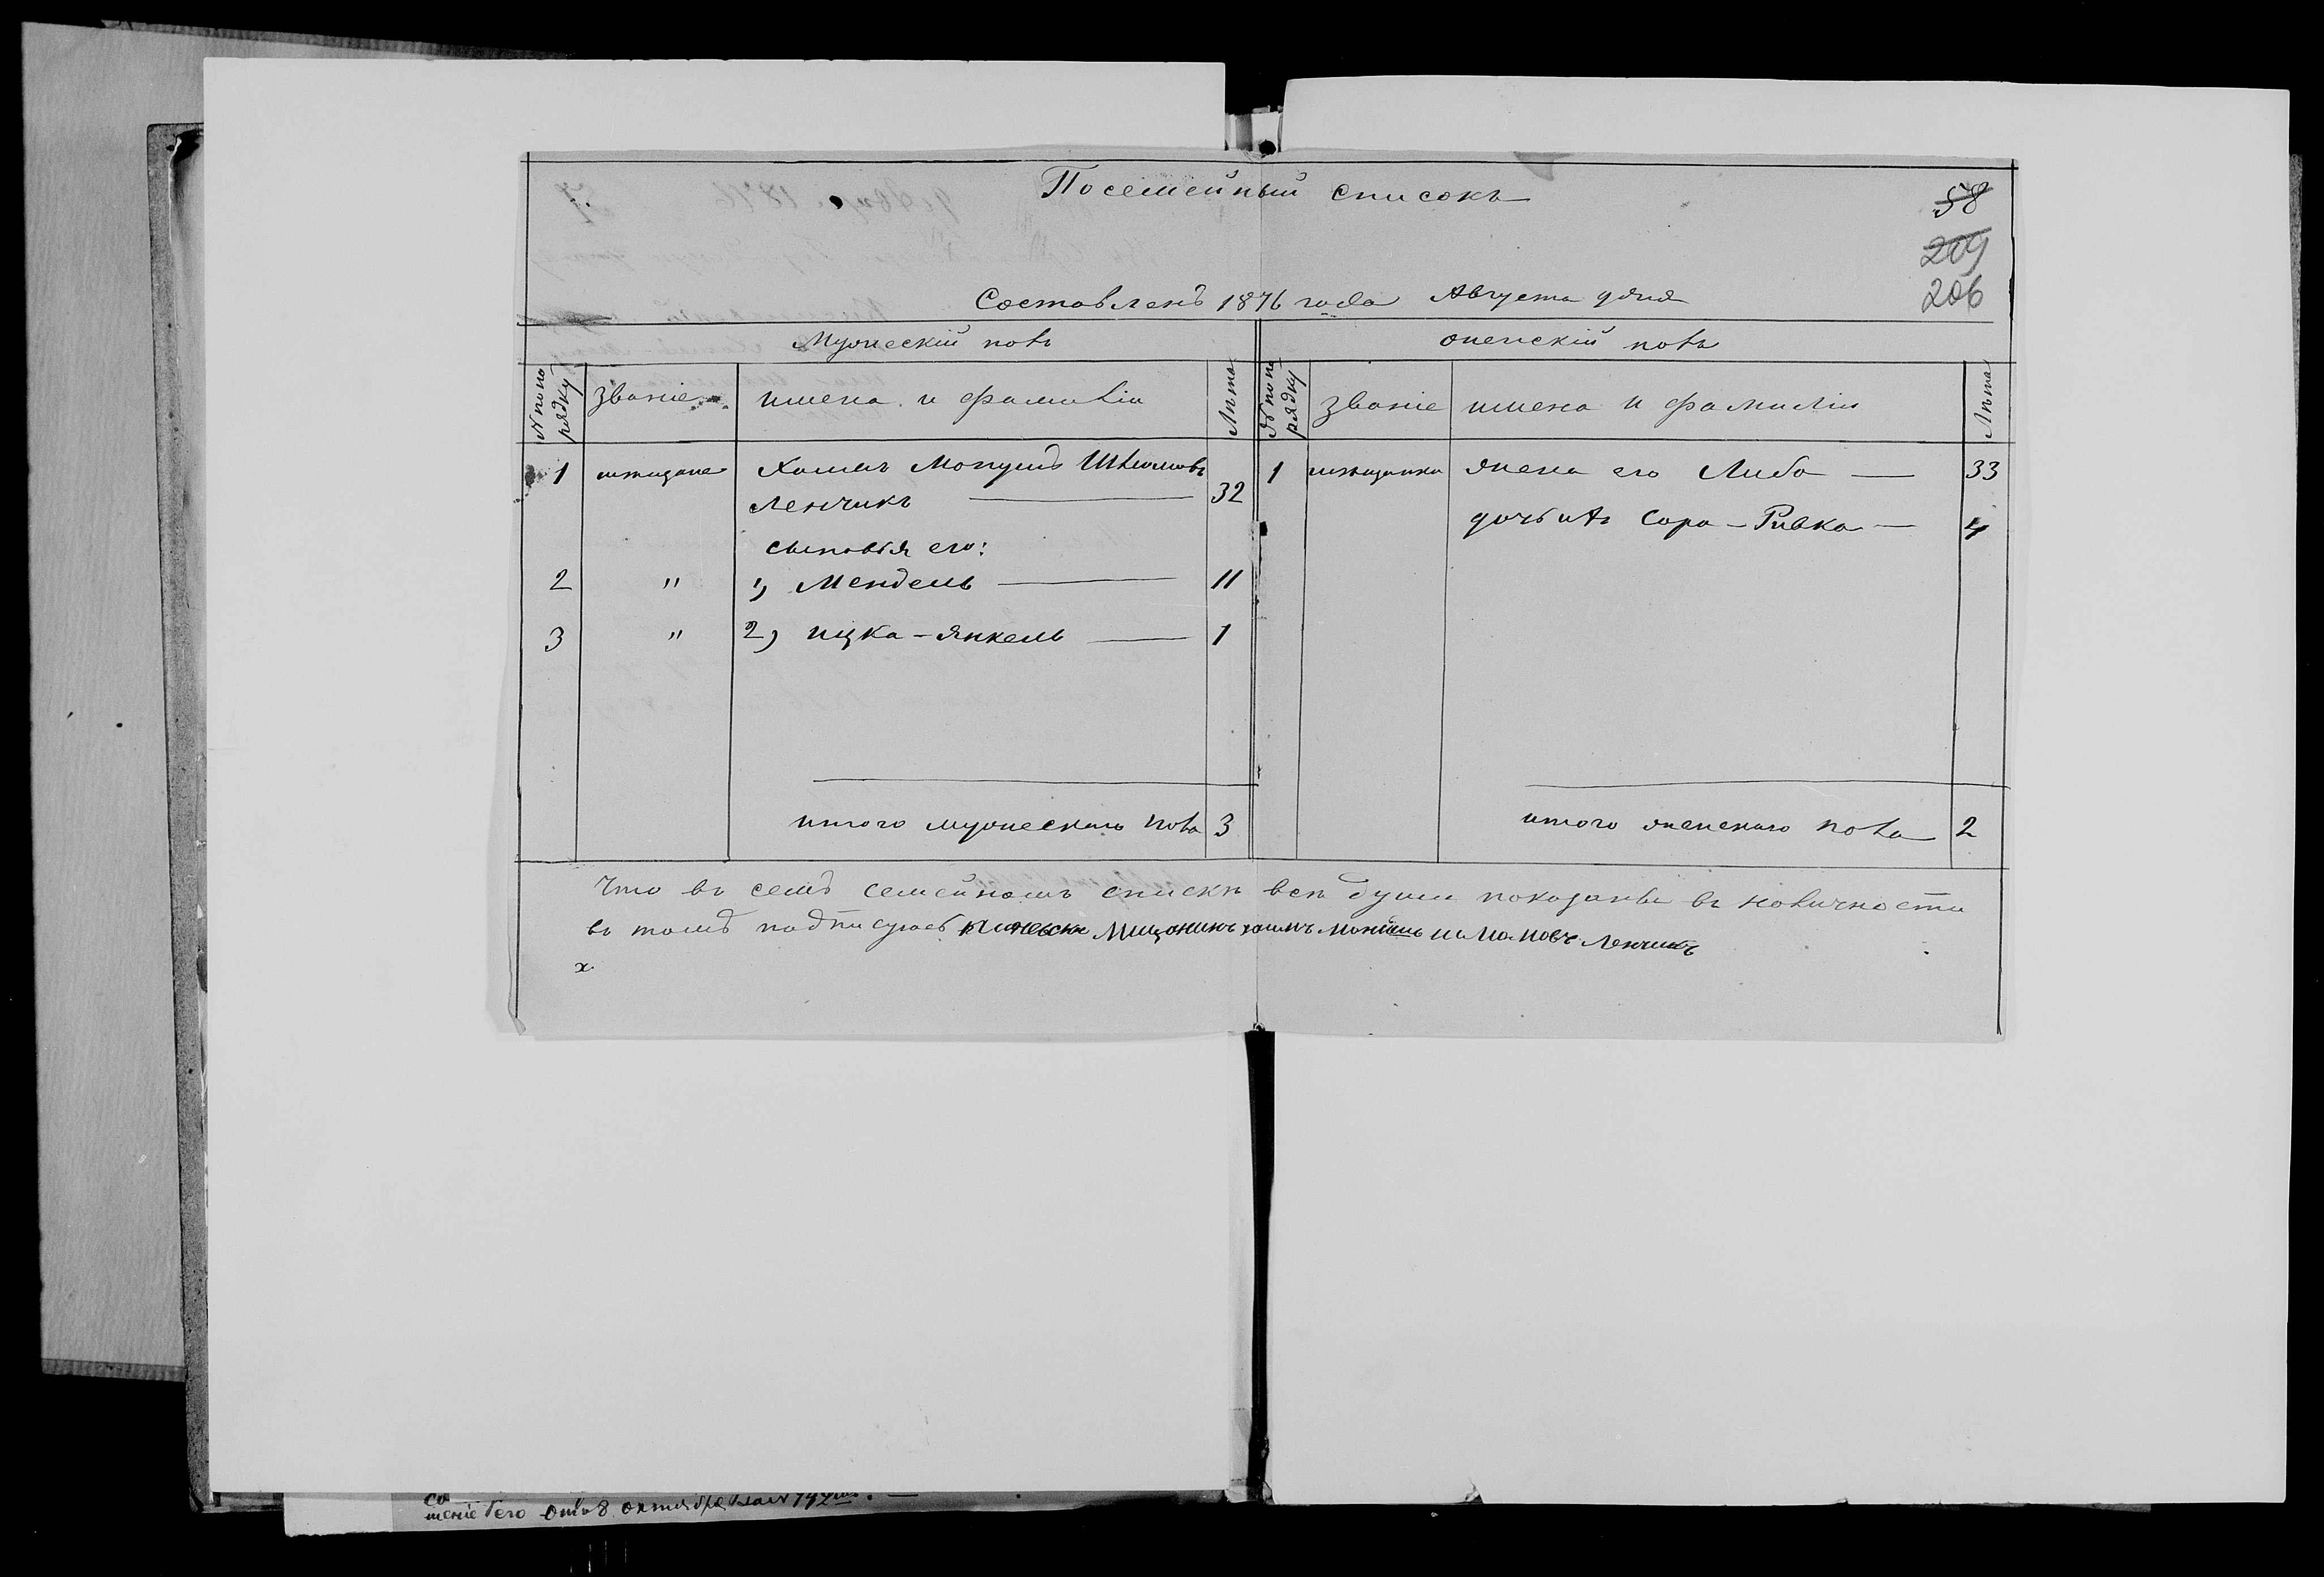 Посемейный списокъ
58
209
206
Составленъ 1876 года Августа дня
Мужескій полъ
Женскій полъ
№ по порядку
званіе
имена и фамиліи
Лѣта
№ по порядку
званіе
имена и фамиліи
Лѣта
1 мѣщане Хаимъ Шлiомовъ 32
Ленчикъ
1 мѣщанка жена его Либа — 33
дочь ихъ Сора-Ривка — 4
сыновья его:
2 " 1, Мендель 11
3 " 2, ицка-Янкель 1
итого мужескаго пола 3
итого женскаго пола 2
Что въ семъ семейномъ спискѣ всѣ души показаны въ наличности
въ томъ подписуюсь Мищанинъ хаимъ Ленчикъ
х
шеніе его отъ 8 октября